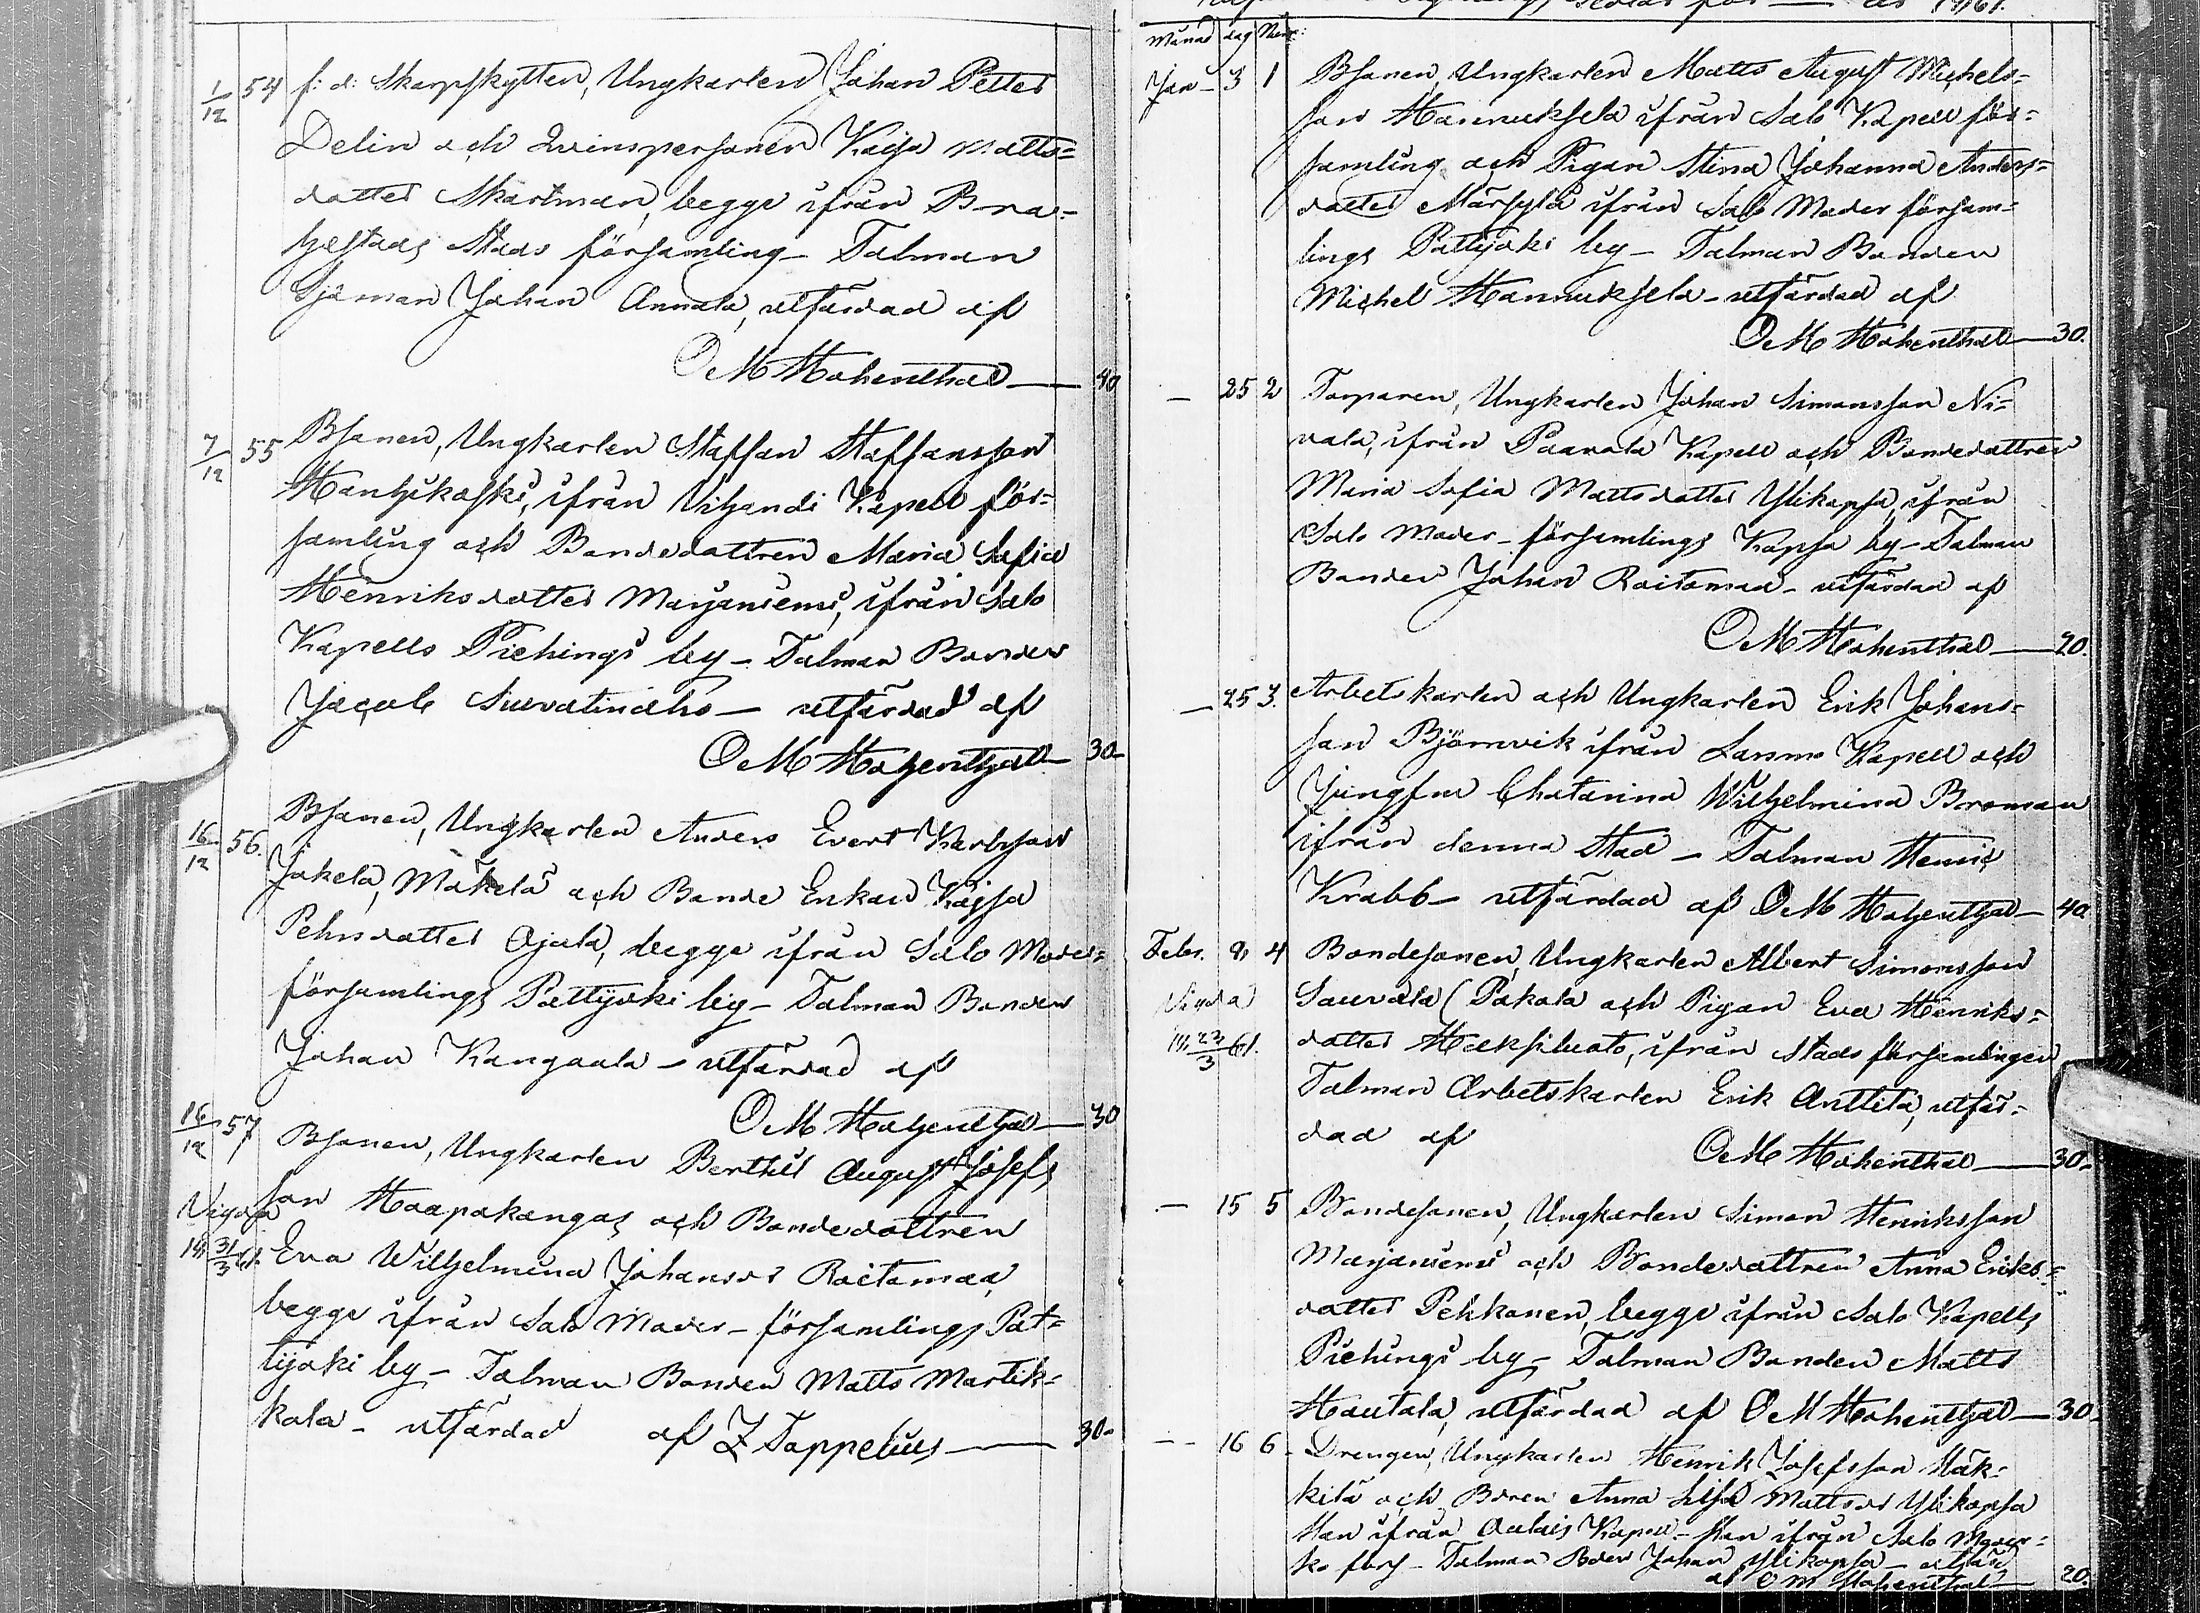 1/12 54 f: d: Skarpskytten, Ungkarlen Johan Petter
Delin och Qvinspersonen Kajsa Matts=
dotter Skartman, begge ifrån Bra=
hestads Stads församling – Talman
Sjöman Johan Annala, utfärdad af
O M Hohenthal — 40
7/12 55 Bsonen, Ungkarlen Staffan Staffansson
Hantjikoski, ifrån Vihandi Kapell för=
samling och Bondedottren Maria Sofia
Henriksdotter Marjaniemi, ifrån Salo
Kapells Piehingi by – Talman Bonden
Jacob Suvatindho – utfärdad af
O M Hohenthal – 30–
16/12 56. Bsonen, Ungkarlen Anders Evert
Jokela, Mäkelä och Bonde Enkan Kajsa
Pehrsdotter Ojala, begge ifrån Salo Moder=
församlings Pattijoki by – Talman Bonden
Johan Kangaala – utfärdad af
O M Hohenthal — 30
16/12 57 Bsonen, Ungkarlen Berthil August Josefs
son Haapakangas och Bondedottren
Vigda
14 31/3 61. Eva Wilhelmina Johansdr Raitamaa,
begge ifrån Salo Moder – församlings Pat=
tijoki by – Talman Bonden Matts Martik=
kala – utfärdad af Z Toppelius — 30–
1861.
Månad dag Num:
Jan – 3 1 Bsonen, Ungkarlen Matts August Michels=
son Hannuksela ifrån Salo Kapell för=
samling och Pigan Stina Johanna Anders=
dotter Märsylä ifrån Salo Moder försam=
lings Pattijoki by – Talman Bonden
Michel Hannuksela – utfärdad af
O M Hohenthal — 30.
– 25 2 Torparen, Ungkarlen Johan Simonsson Ni=
vala, ifrån Paavola Kapell och Bondedottren
Maria Sofia Mattsdotter Ylikopsa, ifrån
Salo Moder – församlings Kopsa by – Talman
Bonden Johan Raitamaa – utfärdad af
O M Hohenthal — 20.
– 25 3. Arbetskarlen och Ungkarlen Erik Johans=
son Björnvik ifrån Larsmo Kapell och
Jungfrun Chatarina Wilhelmina Broman
ifrån denna Stad – Talman Henric
Krabb – utfärdad af O M Hohenthal – 40.
Febr. 8 4 Bondesonen, Ungkarlen Albert Simonsson
Vigda
14 23/3 61. Sauvala (Pokala och Pigan Eva Henriks=
dotter Haksiluoto, ifrån Stads församlingen
Talman Arbetskarlen Erik Anttila, utfär=
dad af O M Hohenthal — 30–
– 15 5 Bondesonen, Ungkarlen Simon Henriksson
Marjaniemi och Bondedottren Anna Eriks=
dotter Pekkonen, begge ifrån Salo Kapells
Piehingi by – Talman Bonden Matts
Hautala, utfärdad af O M Hohenthal — 30–
– 16 6 – Drengen, Ungkarlen Henrik Josefsson
kilä och Anna Lisa Mattsdr Ylikopsa
Han ifrån Kapell – Hon ifrån Salo Moder=
Talman Johan Ylikopsa –
af O M Hohenthal — 20.